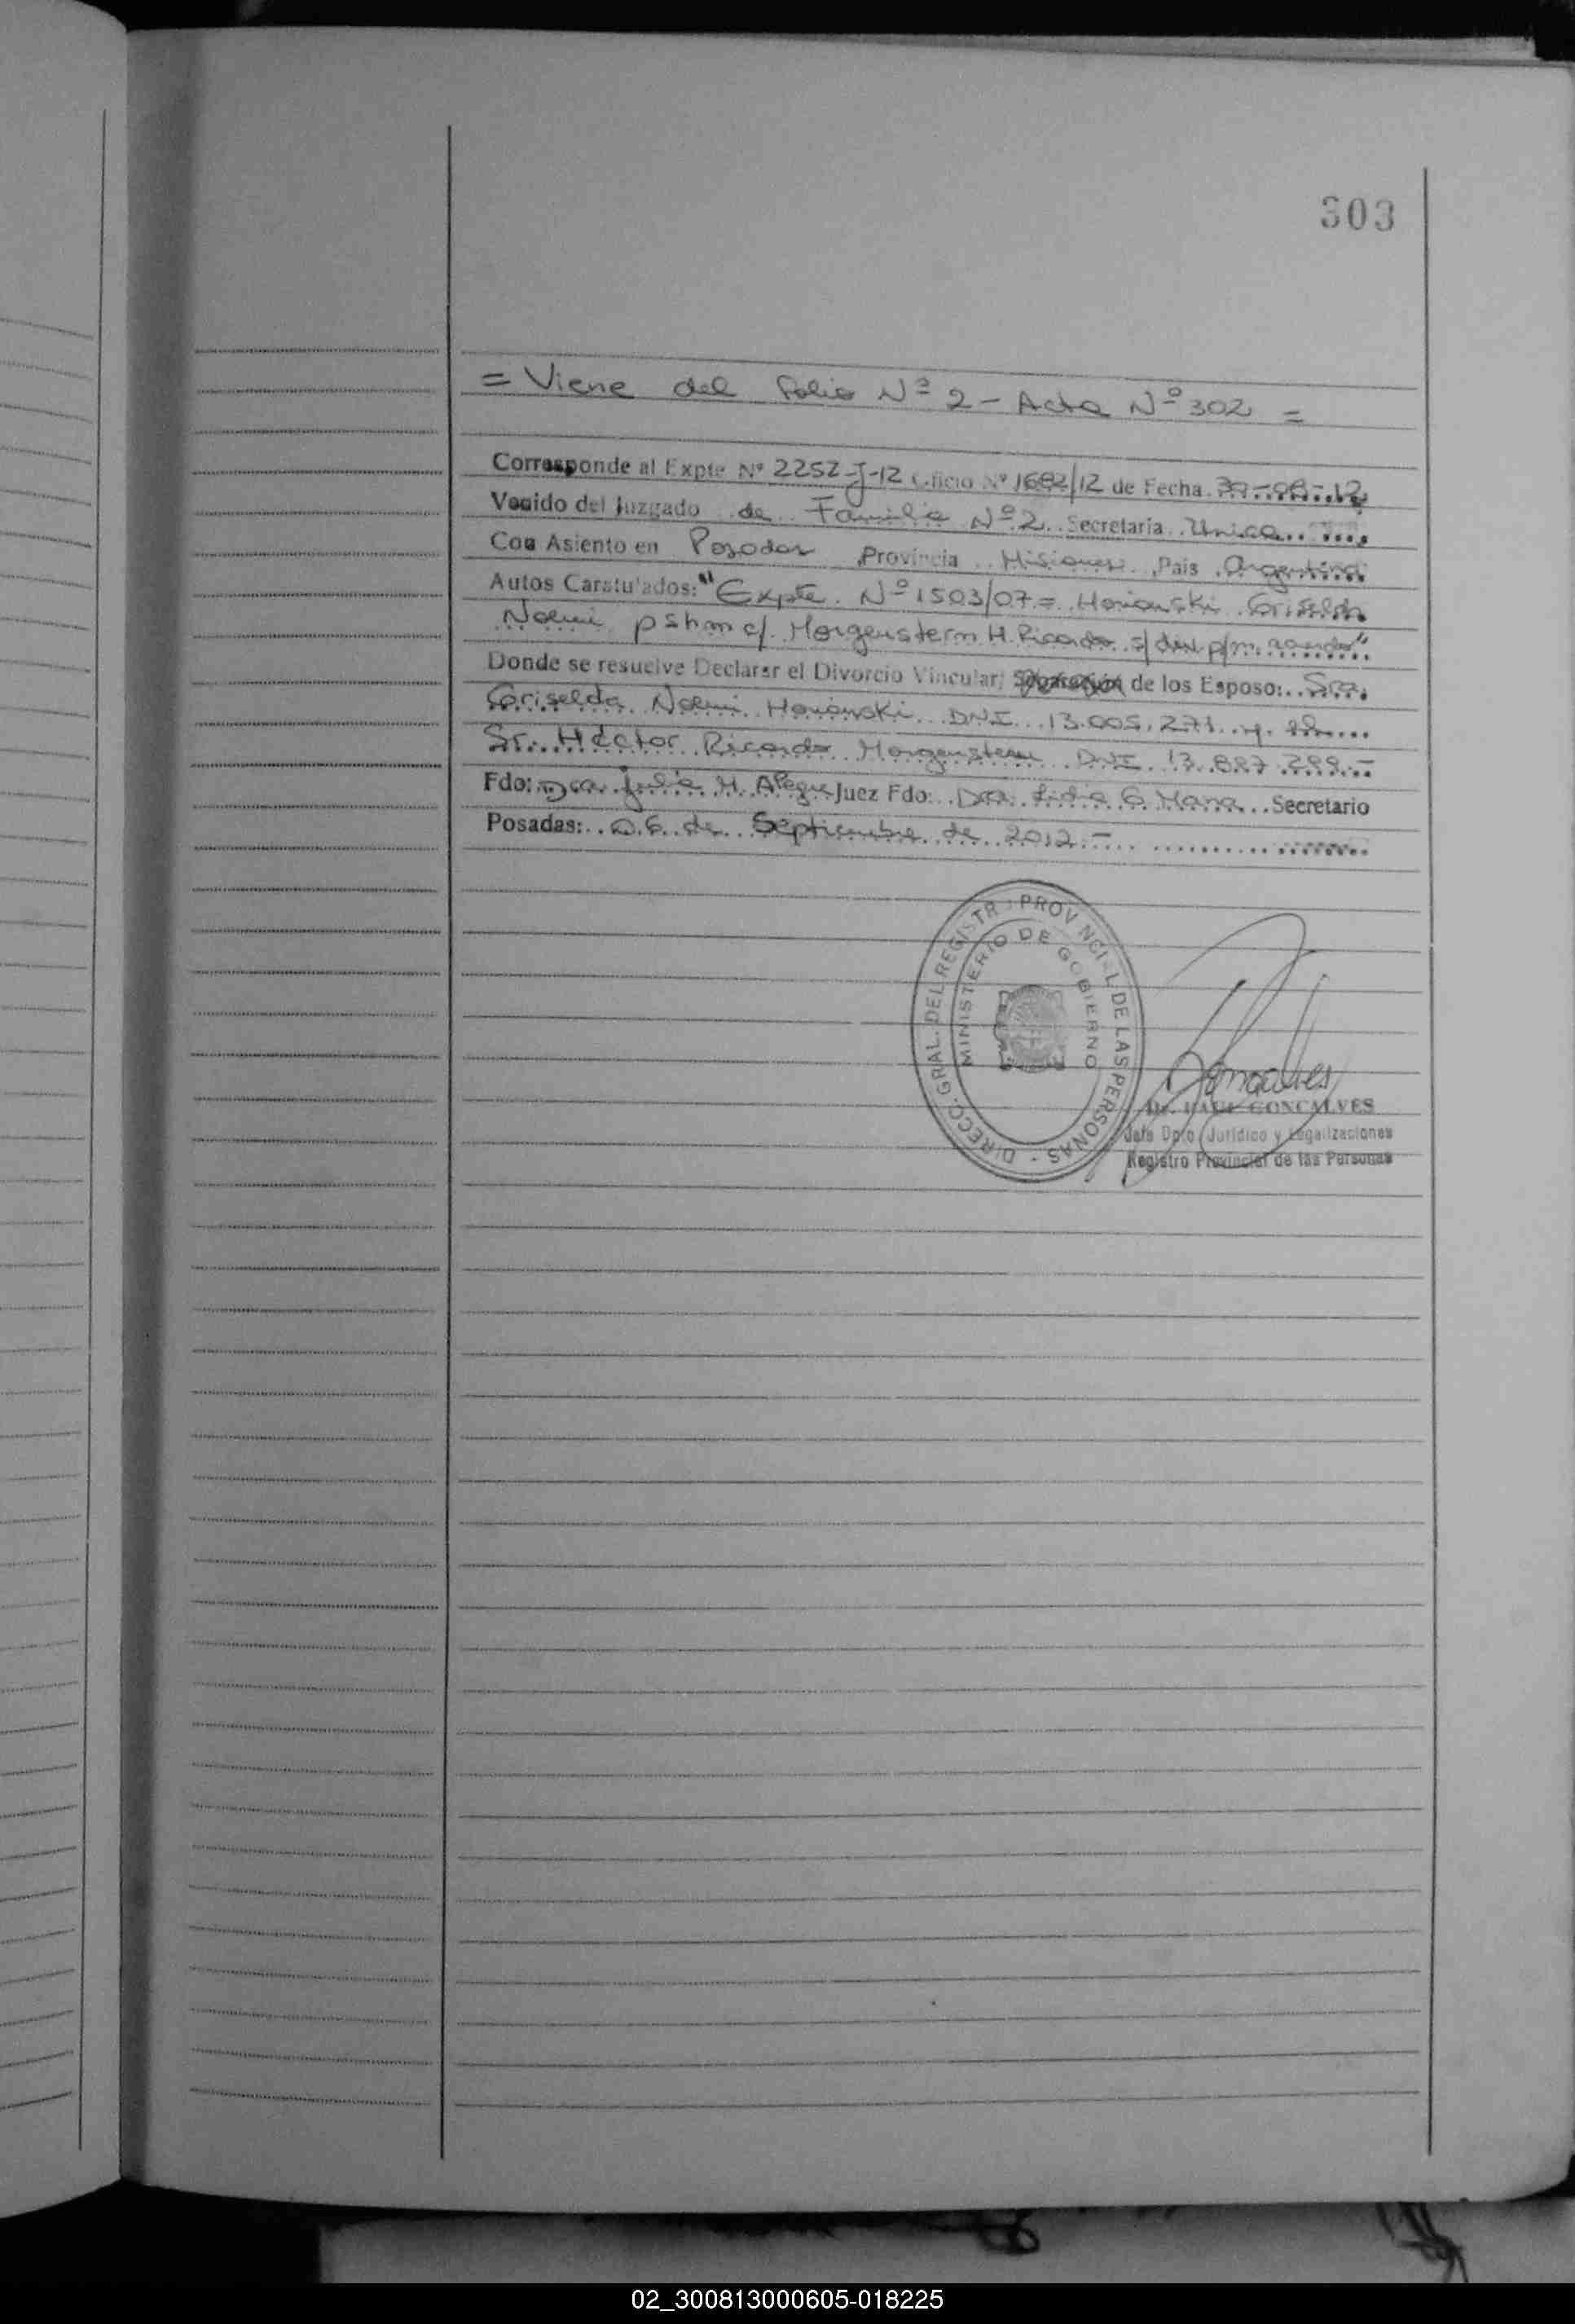 303
= Viene del folio Nº 2 - Acta Nº 302 =
Corresponde al Expte Nº 2252-J-12 Oficio Nº 1682/12 de Fecha 30-08-12
Venido del Juzgado de Familia Nº 2 Secretaria Unica
Con Asiento en Posadas Provincia Misiones Pais Argentina
Autos Caratulados: "Expte. Nº 1503/07 = Griselda
Noemi pshm c/ Morgenstern H. Ricardo s/ div. p/m. acuerdo"
Donde se resuelve Declarar el Divorcio Vincular; de los Esposo: Sra.
Griselda Noemi DNI 13.005.271 y el
Sr. Héctor Ricardo Morgenstern DNI 13.887.299.-
Fdo: Dra. Julia M. Alegre Juez Fdo: Dra. Lidia G. Secretario
Posadas: 06 de Septiembre de 2012.-
DIRECC. GRAL. DEL REGISTR PROVINCIAL DE LAS PERSONAS -
MINISTERIO DE GOBIERNO
Goncalves
Dr. RAUL GONCALVES
Jefe Dpto. Jurídico y Legalizaciones
Registro Provincial de las Personas
02_300813000605-018225